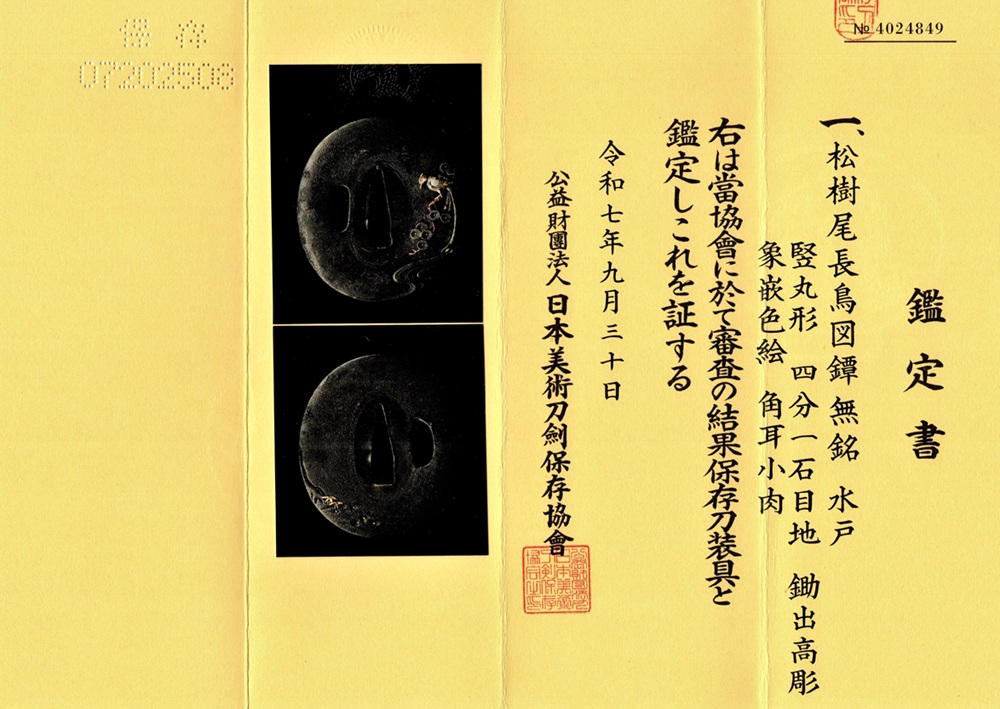 № 4024849
鑑定書
一、松樹尾長鳥図鐔 無銘 水戸
竪丸形 四分一石目地 鋤出高彫
象嵌色絵 角耳小肉
右は當協會に於て審査の結果保存刀装具と
鑑定しこれを証する
令和七年九月三十日
公益財團法人 日本美術刀劍保存協會
保存
07202508